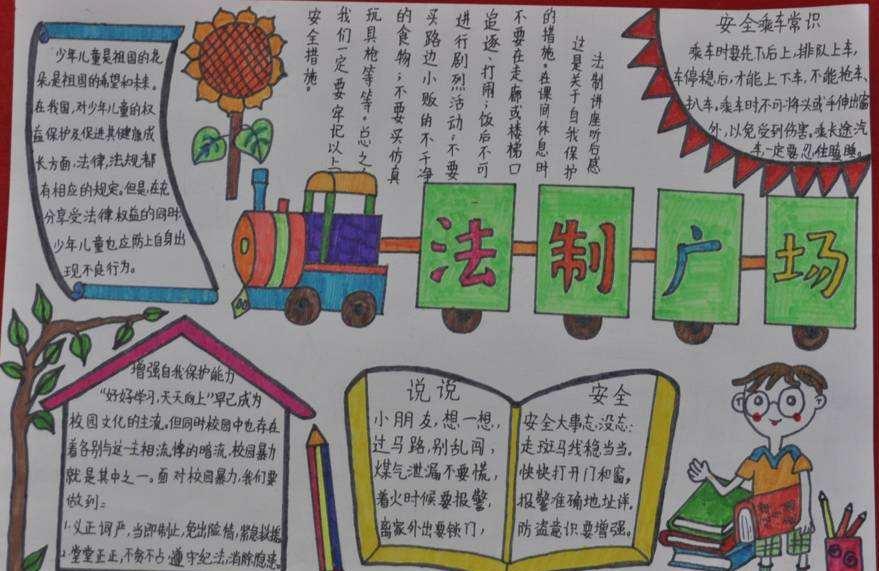 少年儿童是祖国的花
朵,是祖国的希望和未来。
在我国,对少年儿童的权
益保护及促进其健康成
长方面,法律,法规都
有相应的规定。但是,在充
分享受法律权益的同时
少年儿童也应防止自身出
现不良行为。
法制讲座听后感
这是关于自我保护
的措施。在课间休息时
不要在走廊或楼梯口
追逐、打闹;饭后不可
进行剧烈活动;不要
买路边小贩的不干净
的食物;不要买仿真
玩具枪等等。总之,
我们一定要牢记以上
安全措施。
安全乘车常识
乘车时要先下后上,排队上车,
车停稳后,才能上下车,不能抢车、
扒车。乘车时不可将头或手伸出窗
外,以免受到伤害。乘长途汽
车一定要忍住瞌睡。
法制广场
增强自我保护能力
“好好学习,天天向上”早已成为
校园文化的主流。但同时校园中也存在
着各别与这一主相流悖的暗流,校园暴力
就是其中之一。面对校园暴力,我们要
做到:
1.义正词严,当即制止,免出险情,紧急救援
2.堂堂正正,不贪不占,遵守纪法,消除隐患。
说说
小朋友,想一想,
过马路,别乱闯;
煤气泄漏不要慌,
着火时候要报警,
离家外出要锁门,
安全
安全大事志没忘:
走斑马线稳当当。
快快打开门和窗。
报警准确地址详。
防盗意识要增强。